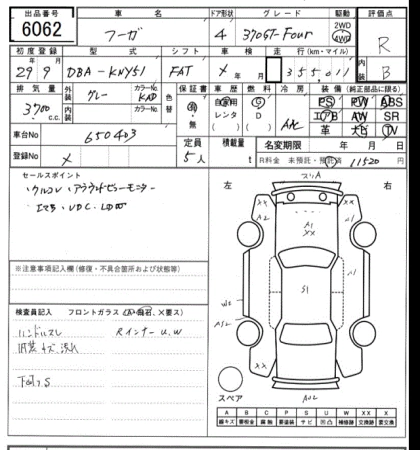 出品番号 車名 ドア形状 グレード 駆動 評価点
6062 フーガ 4 370GT-Four 2WD 4WD R
初度登録 型式 シフト 車検 走行(km・マイル) 内装
29年9月 DBA-KNY51 FAT X年月 355,011 B
排気量 外装 カラーNo. 色替 保証書 車歴 燃料 冷房 装備(純正部品に限る)
3700c.c. グレー KAD 有・無 自家用 G AAC PS PW ABS
内装 カラーNo. レンタ D エアB AW SR
車台No 650403 革 ナビ TV
定員 積載量 名変期限 年月日
登録No X 5人 t R料金 未預託・預託済 11520円
セールスポイント
・アラウンドビューモニター
左 右
※注意事項記入欄(修復・不具合箇所および状態等)
検査員記入 フロントガラス(A・飛石、X要ス)
ハンドルスレ Rインナーu.w
内装キズ、汚れ
下廻りS
XX XX
A2
A1
XX
S1
XX XX
スペア
A B C P S U W X XX
線キズ 要板金 腐蝕 要塗装 サビ 凹凸 補修跡 交換跡 要交換